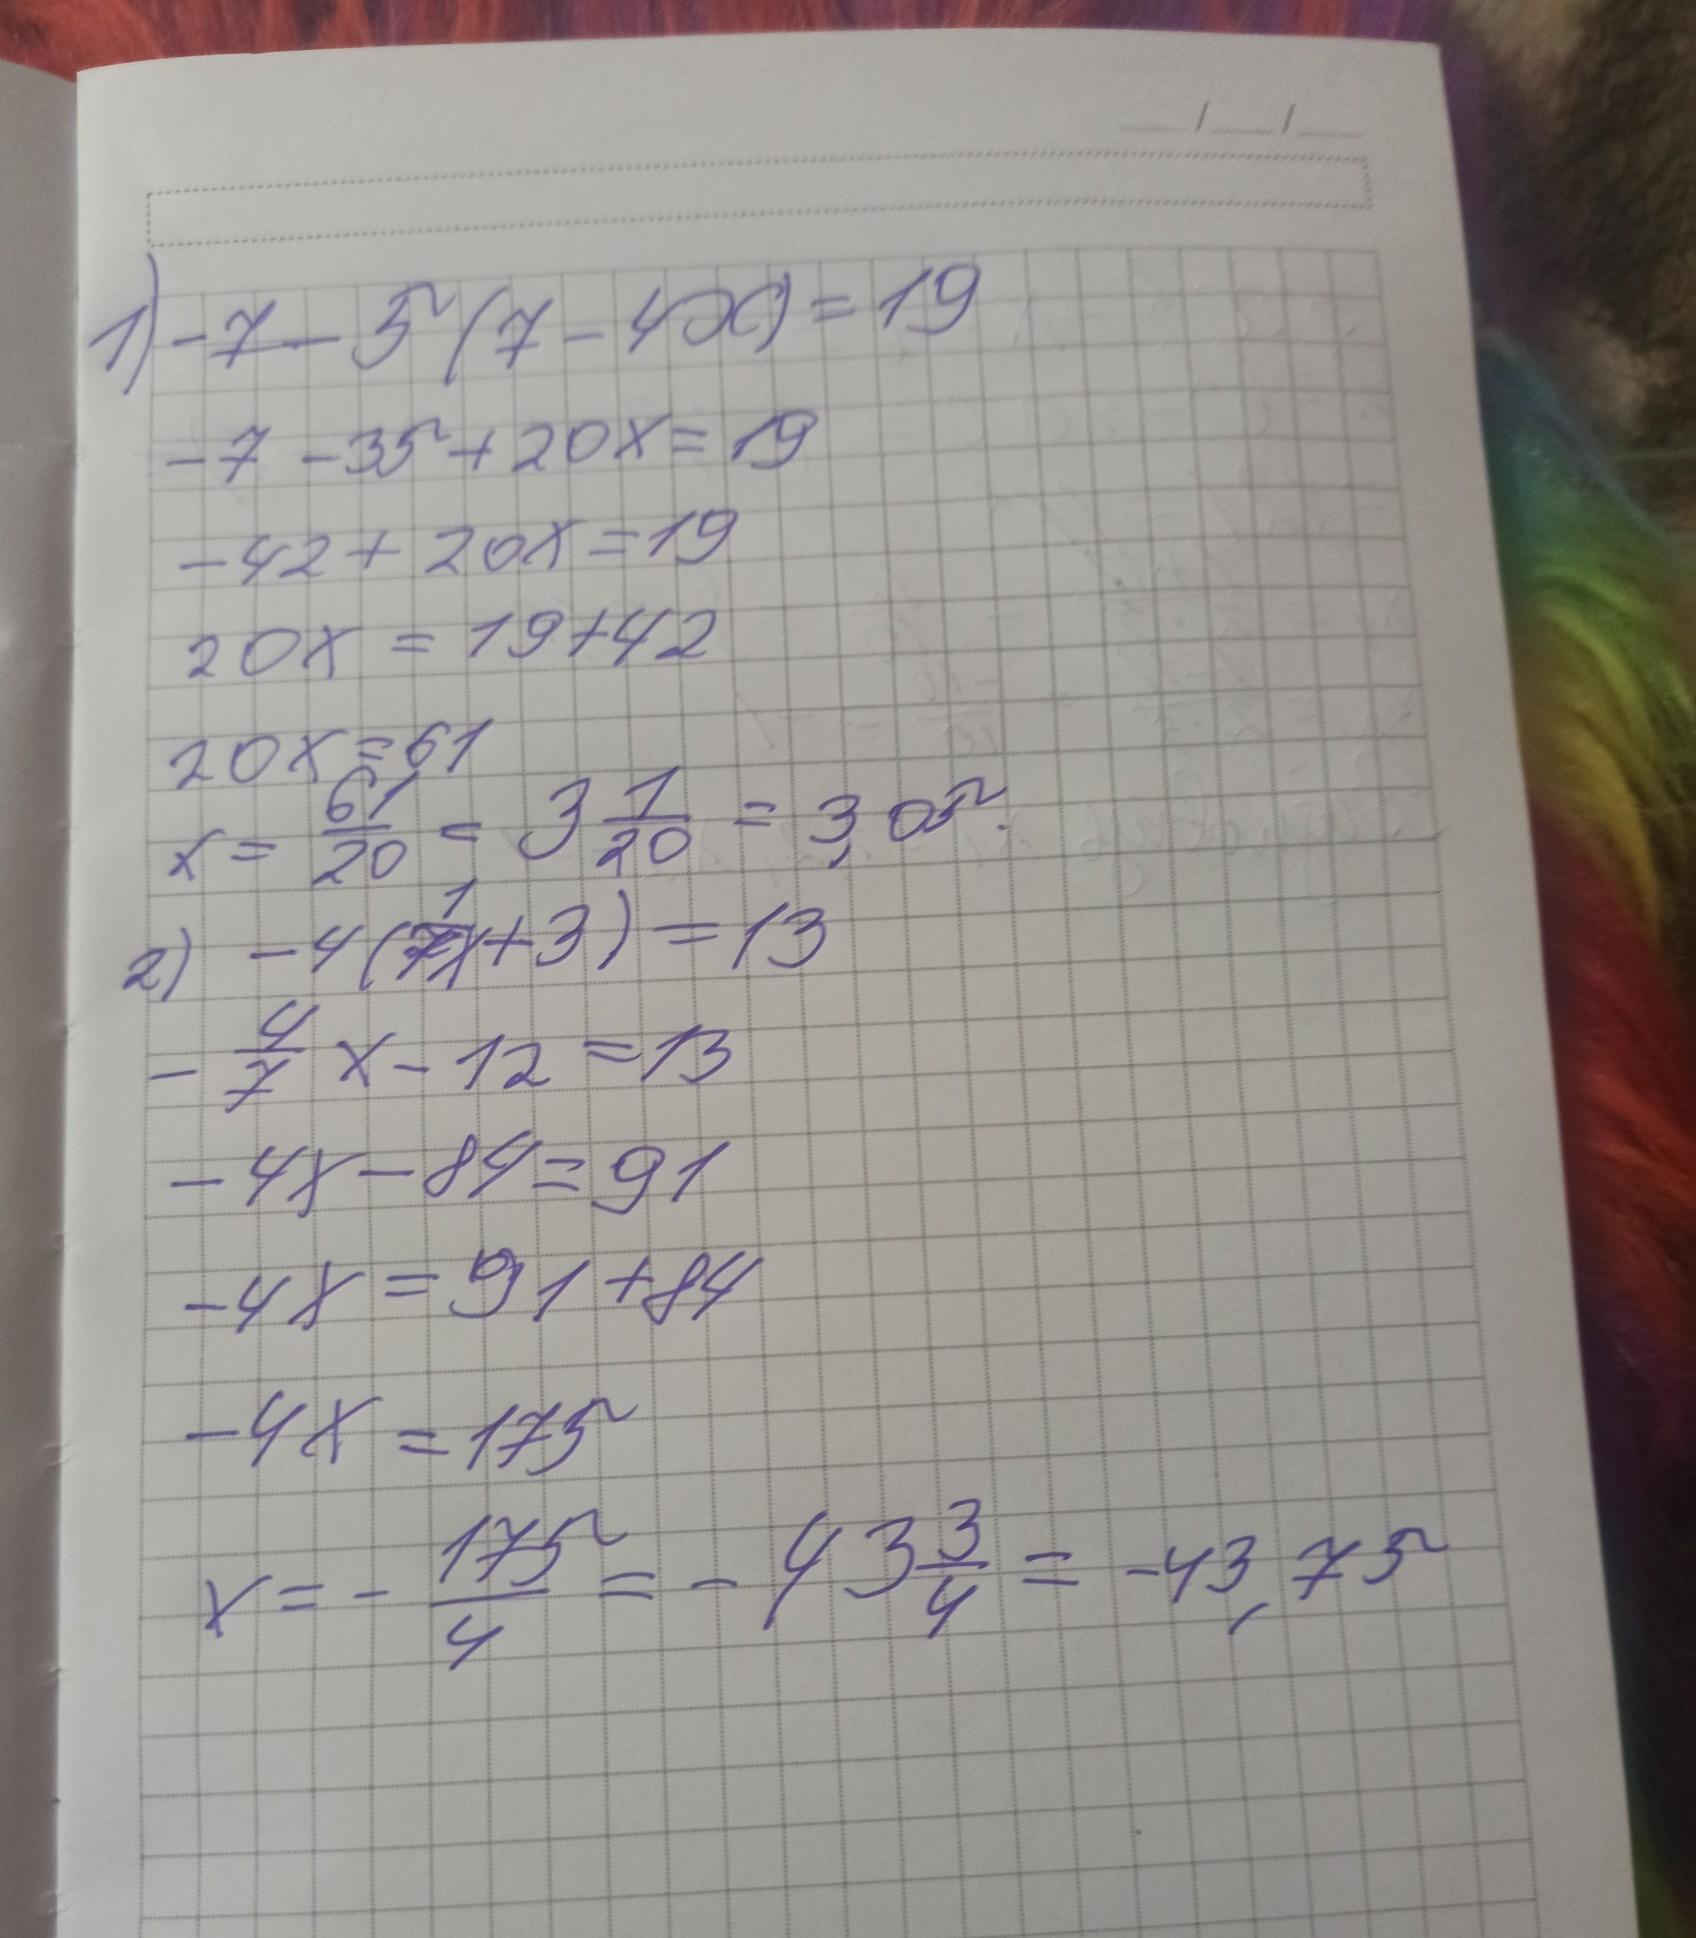 1) -7 - 5(7 - 4x) = 19
-7 - 35 + 20x = 19
-42 + 20x = 19
20x = 19 + 42
20x = 61
x = 61/20 = 3 1/20 = 3,05.
2) -4(1/7x + 3) = 13
-4/7 x - 12 = 13
-4x - 84 = 91
-4x = 91 + 84
-4x = 175
x = - 175/4 = - 43 3/4 = -43,75